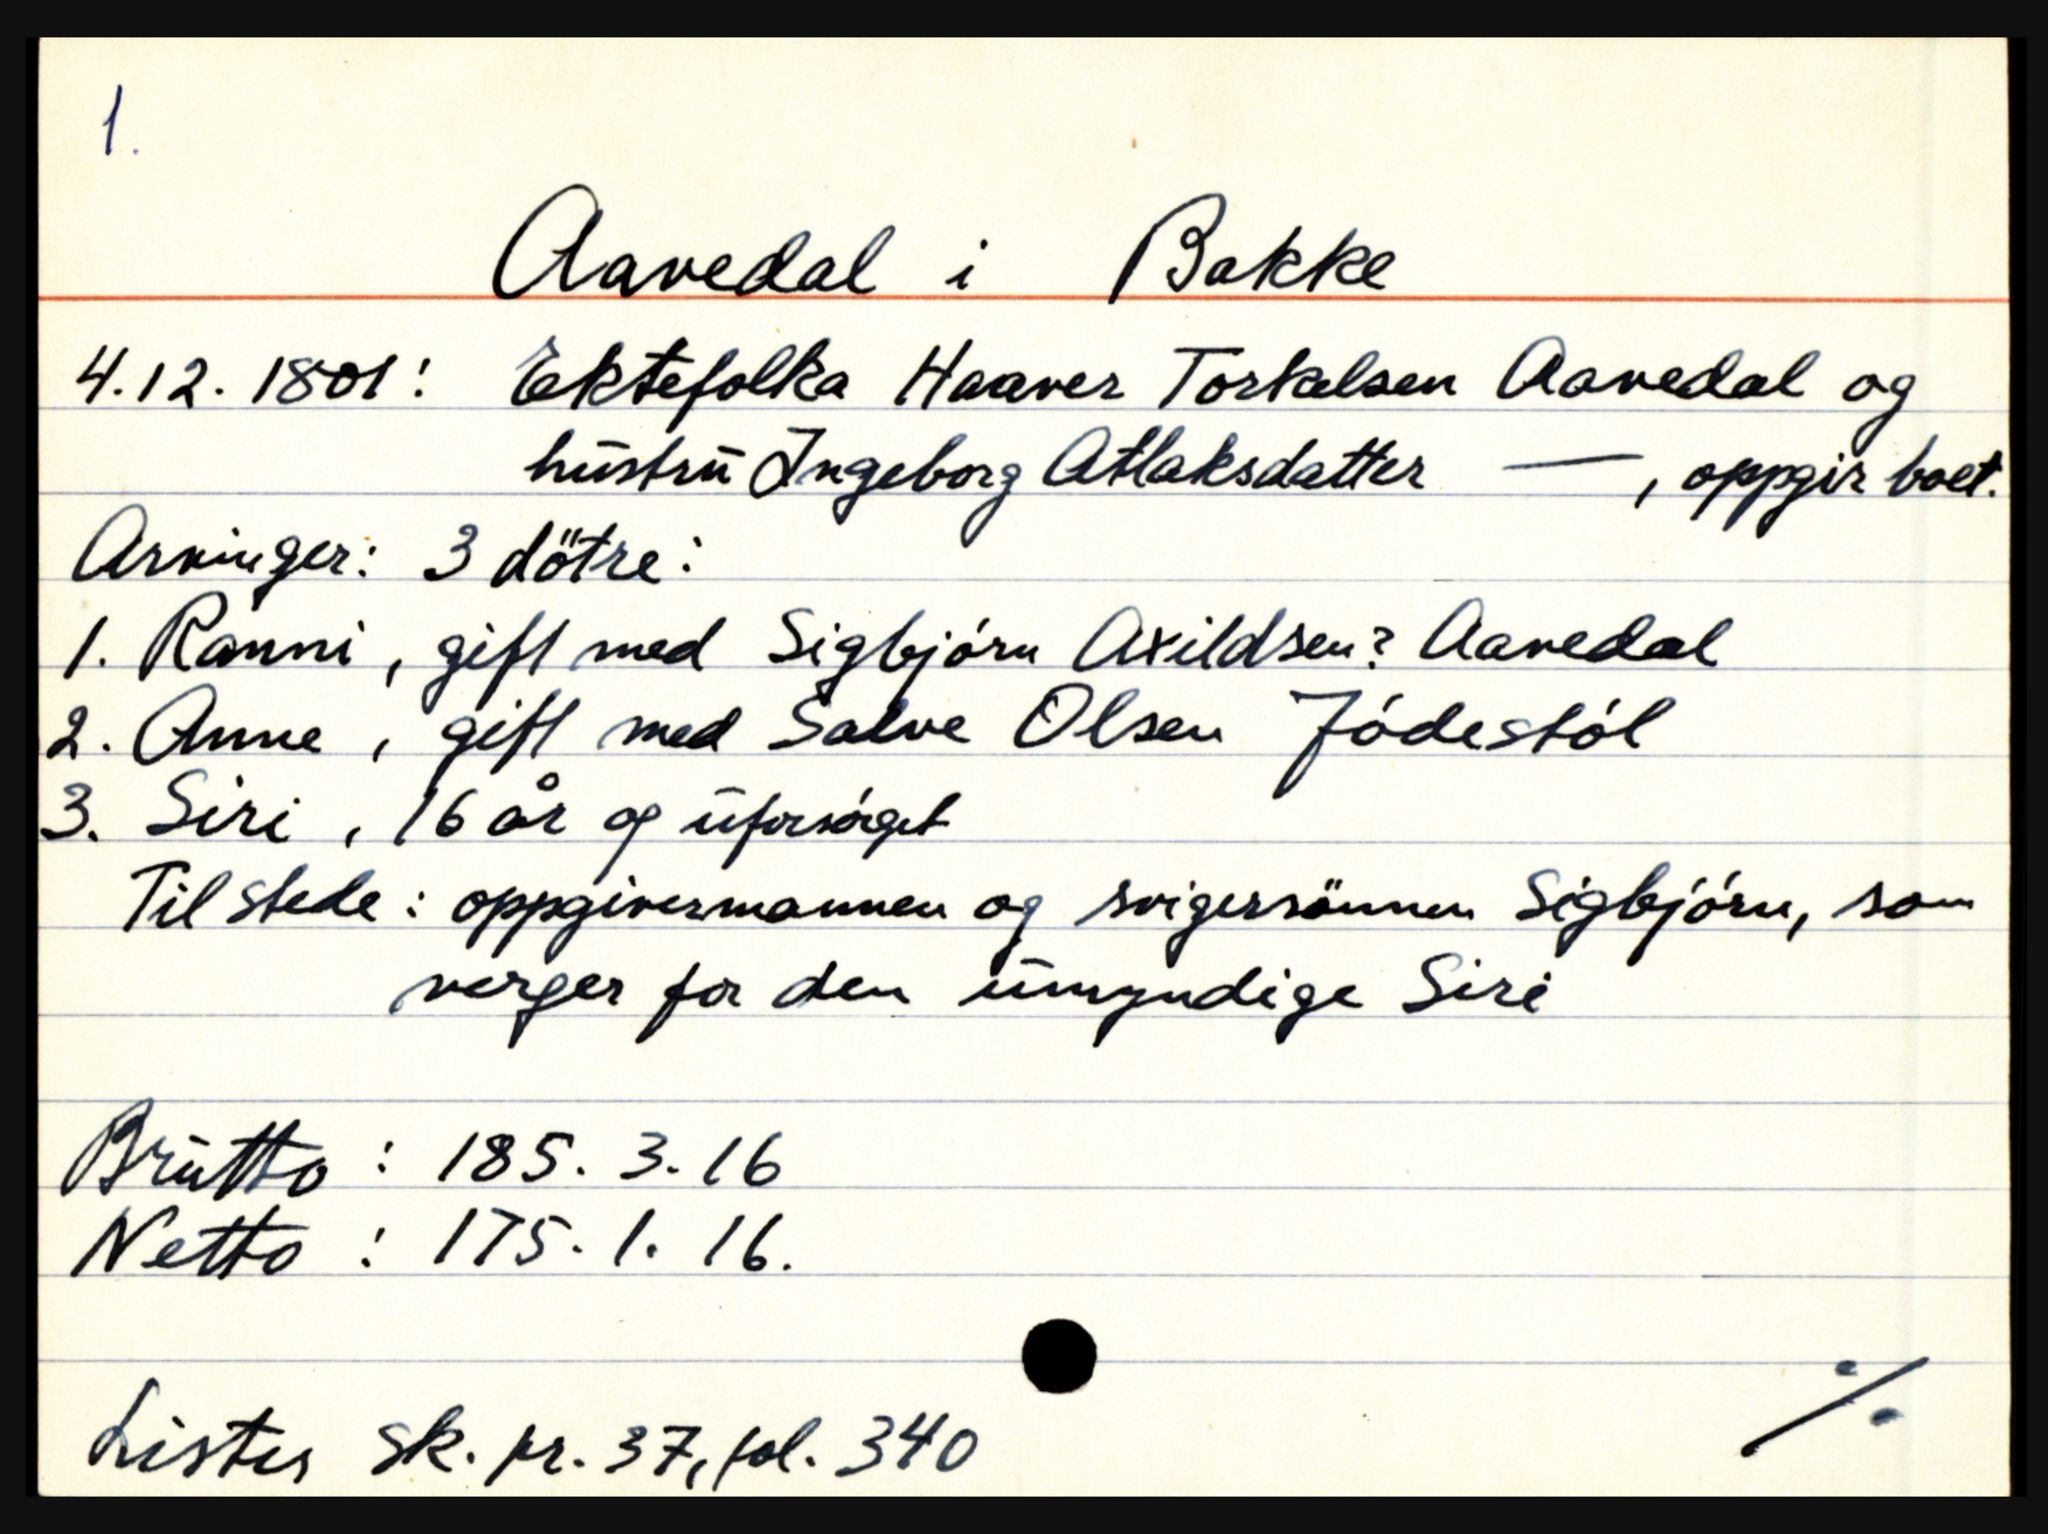 1.
Aavedal i Bakke
4.12. 1801: Ektefolka Haaver Torkelsen Aavedal og
hustru Ingeborg Atlaksdatter — , oppgir boet.
Arvinger: 3 dötre:
1. Ranni, gift med Sigbjórn Axildsen? Aavedal
2. Anne, gift med Salve Olsen Jódestól
3. Siri, 16 år og uforsórget
Til stede: oppgivermannen og svigersönnen Sigbjórn, som
verger for den umyndige Siri
Brutto: 185. 3. 16
Netto: 175. 1. 16.
Lister sk. pr. 37, fol. 340
./.